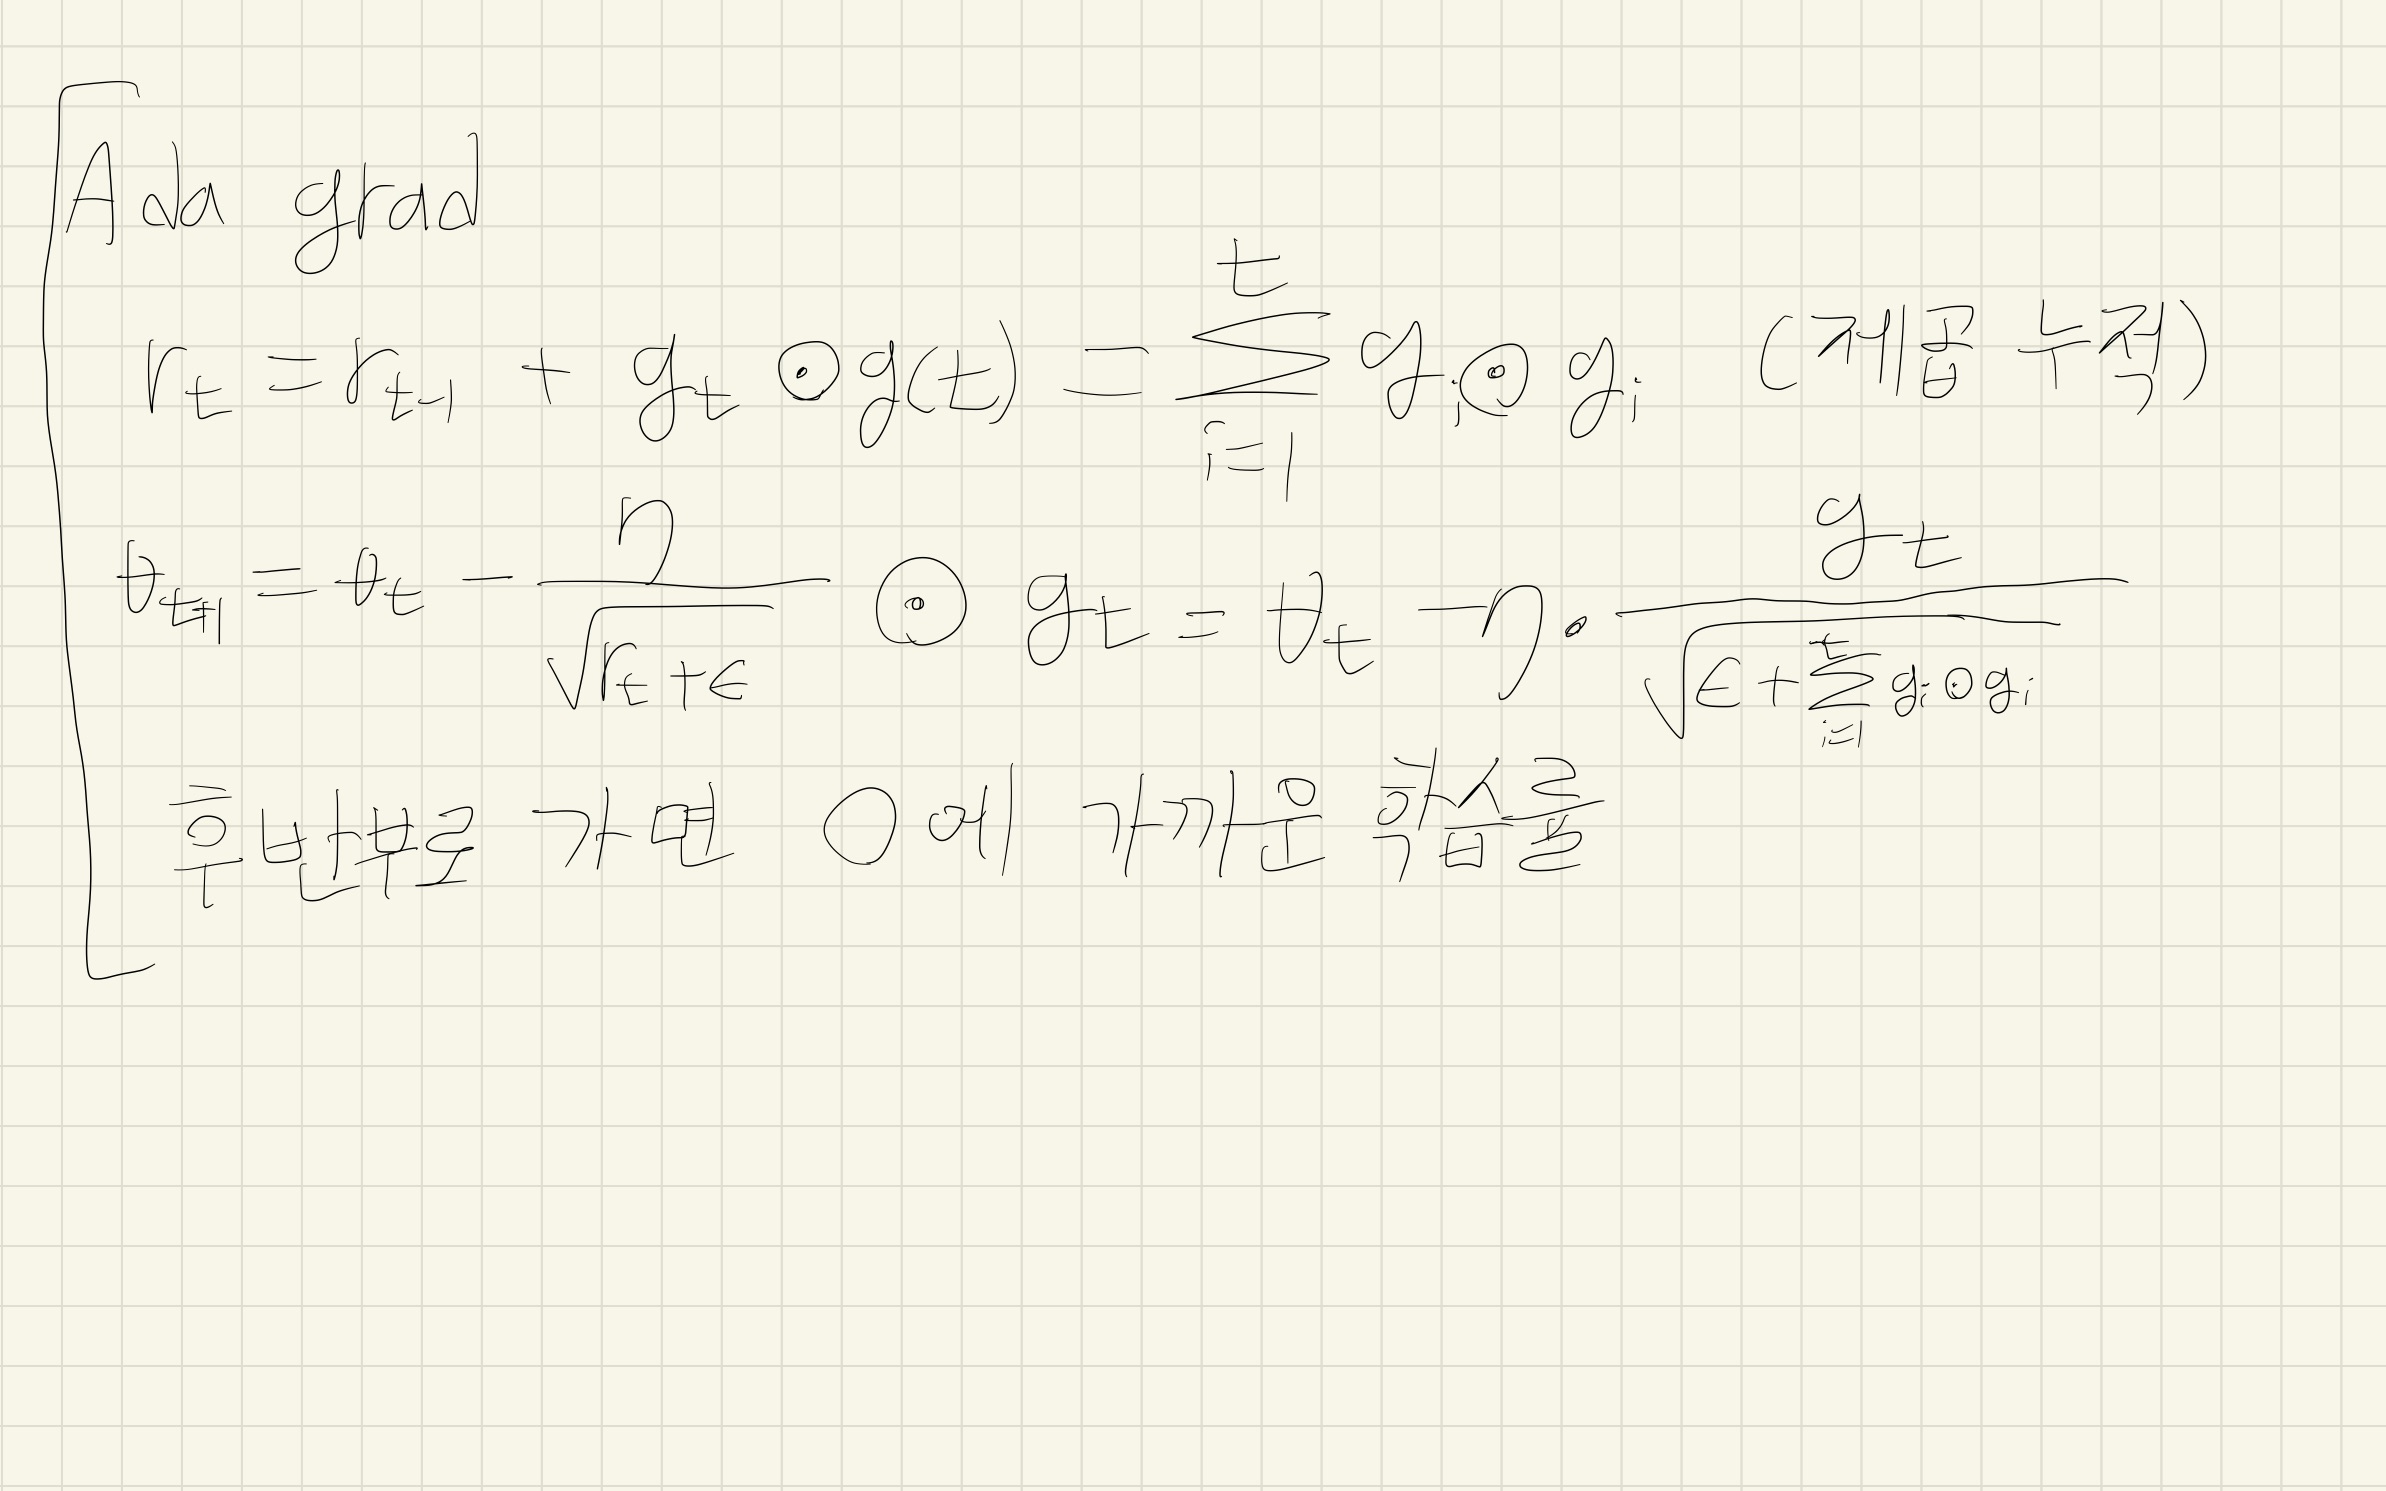 Ada grad
r_t = r_{t-1} + g_t ⊙ g(t) = \sum_{i=1}^{t} g_i ⊙ g_i (제곱 누적)
θ_{t+1} = θ_t - \frac{η}{\sqrt{r_t + ε}} ⊙ g_t = θ_t - η · \frac{g_t}{\sqrt{ε + \sum_{i=1}^{t} g_i ⊙ g_i}}
후반부로 가면 0에 가까운 학습률